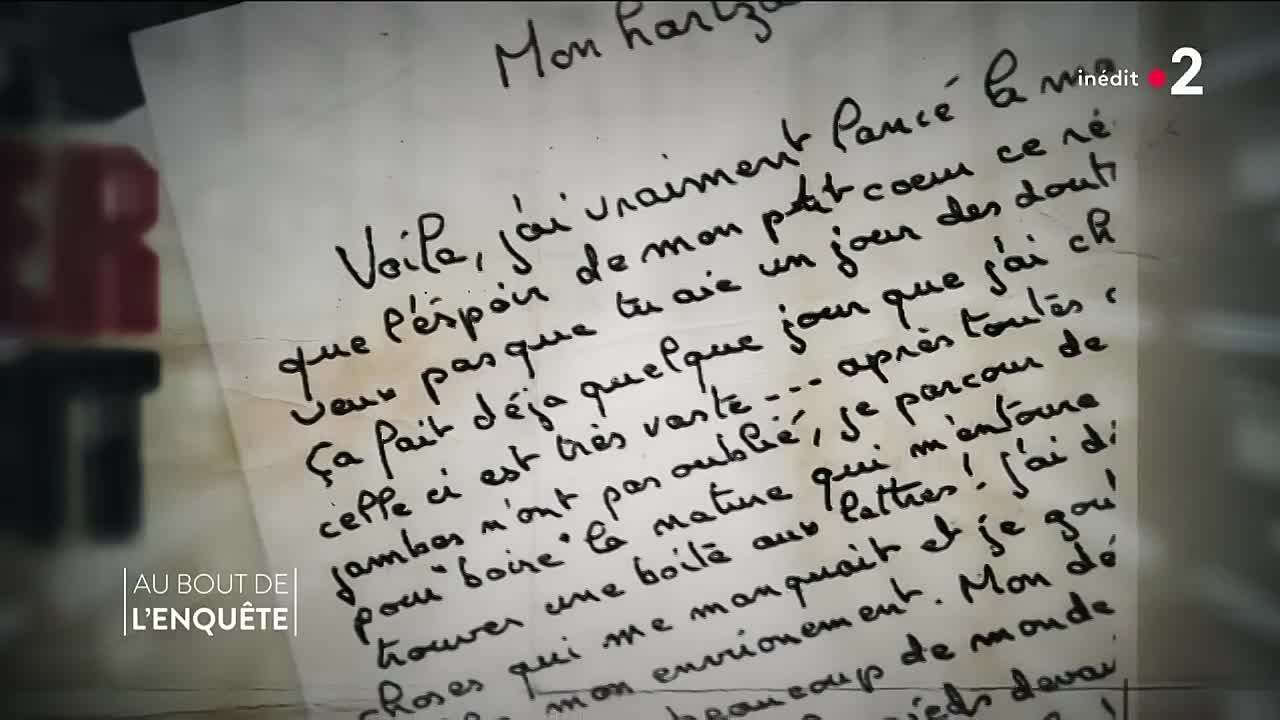 Mon
inédit 2
Voila, j'ai vraiment lancé la
que l'éspoir de mon ptit coeur ce
veux pas que tu aie un jour des
ça fait déja quelque jour que j'ai
celle ci est très vaste --- après toutes
jambes n'ont pas oublié, je parcour de
pour "boire" la nature qui m'entoure
trouver une boite aux lettres! J'ai
choses qui me manquait et je
mon envrionement. Mon
beaucoup de monde
ER
AU BOUT DE
L'ENQUÊTE